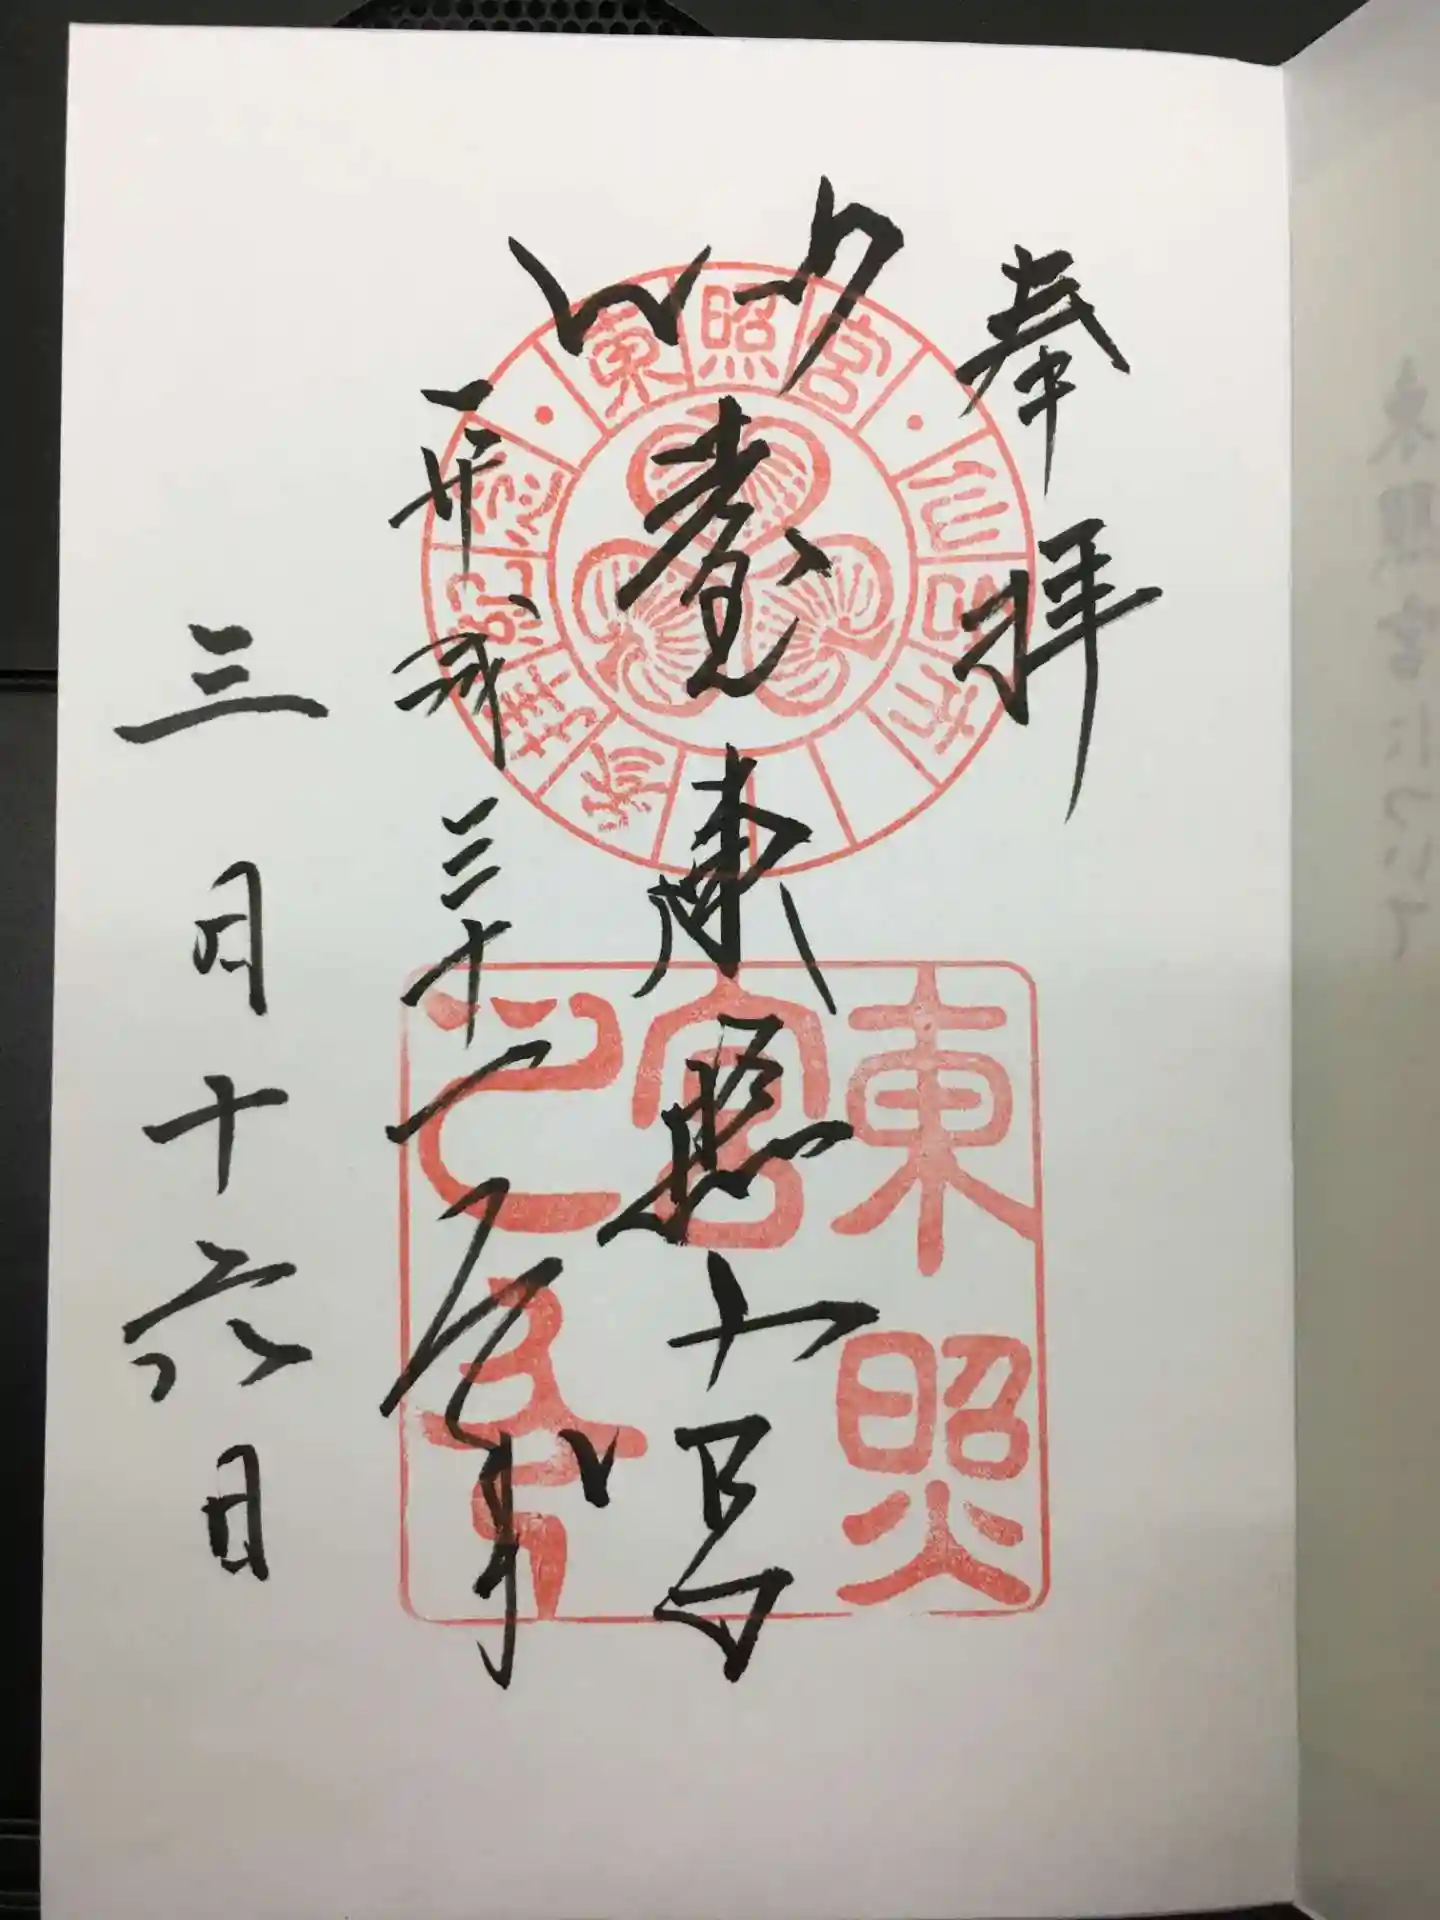 奉拝
仙臺東照宮
平成三十一年
三月十六日
東照宮
仙台市
東照宮